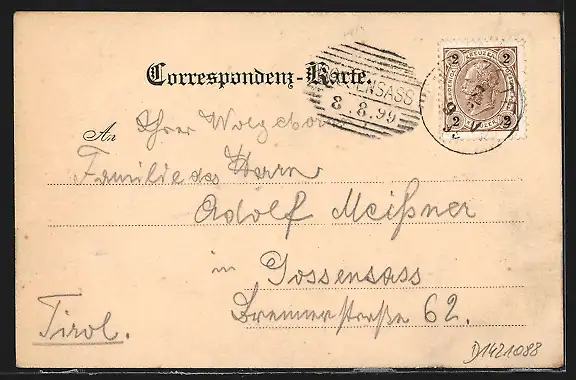 Correspondenz-Karte.
GOSSENSASS
8. 8. 99
2 KREUZER 2
2 2
An Ihrer Wolgeboren
Familie des Herrn
Adolf Meißner
in Gossensass
Brennerstraße 62.
Tirol.
D1421088